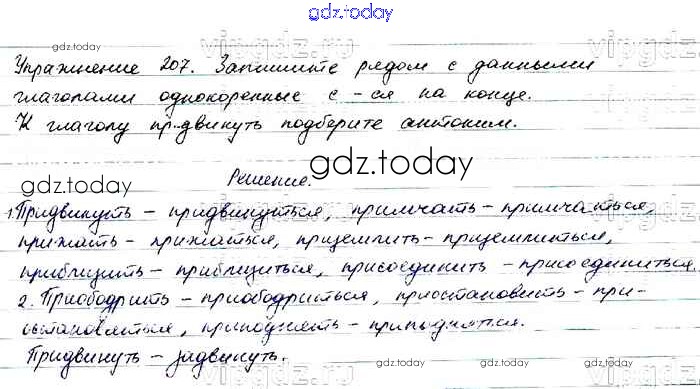 gdz.today
gdz.today vipgdz.ru
Упражнение 207. Запишите рядом с данными
глаголами однокоренные с -ся на конце.
К глаголу пр..двинуть подберите антоним.
gdz.today Решение. gdz.today
1. Придвинуть – придвинуться, примчать – примчаться,
прижать – прижаться, приземлить – приземлиться,
приблизить – приблизиться, присоединить – присоединиться.
2. Приободрить – приободриться, приостановить – при-
остановиться, приподнять – приподняться.
Придвинуть – задвинуть.
gdz.today gdz.today
vipgdz.ru